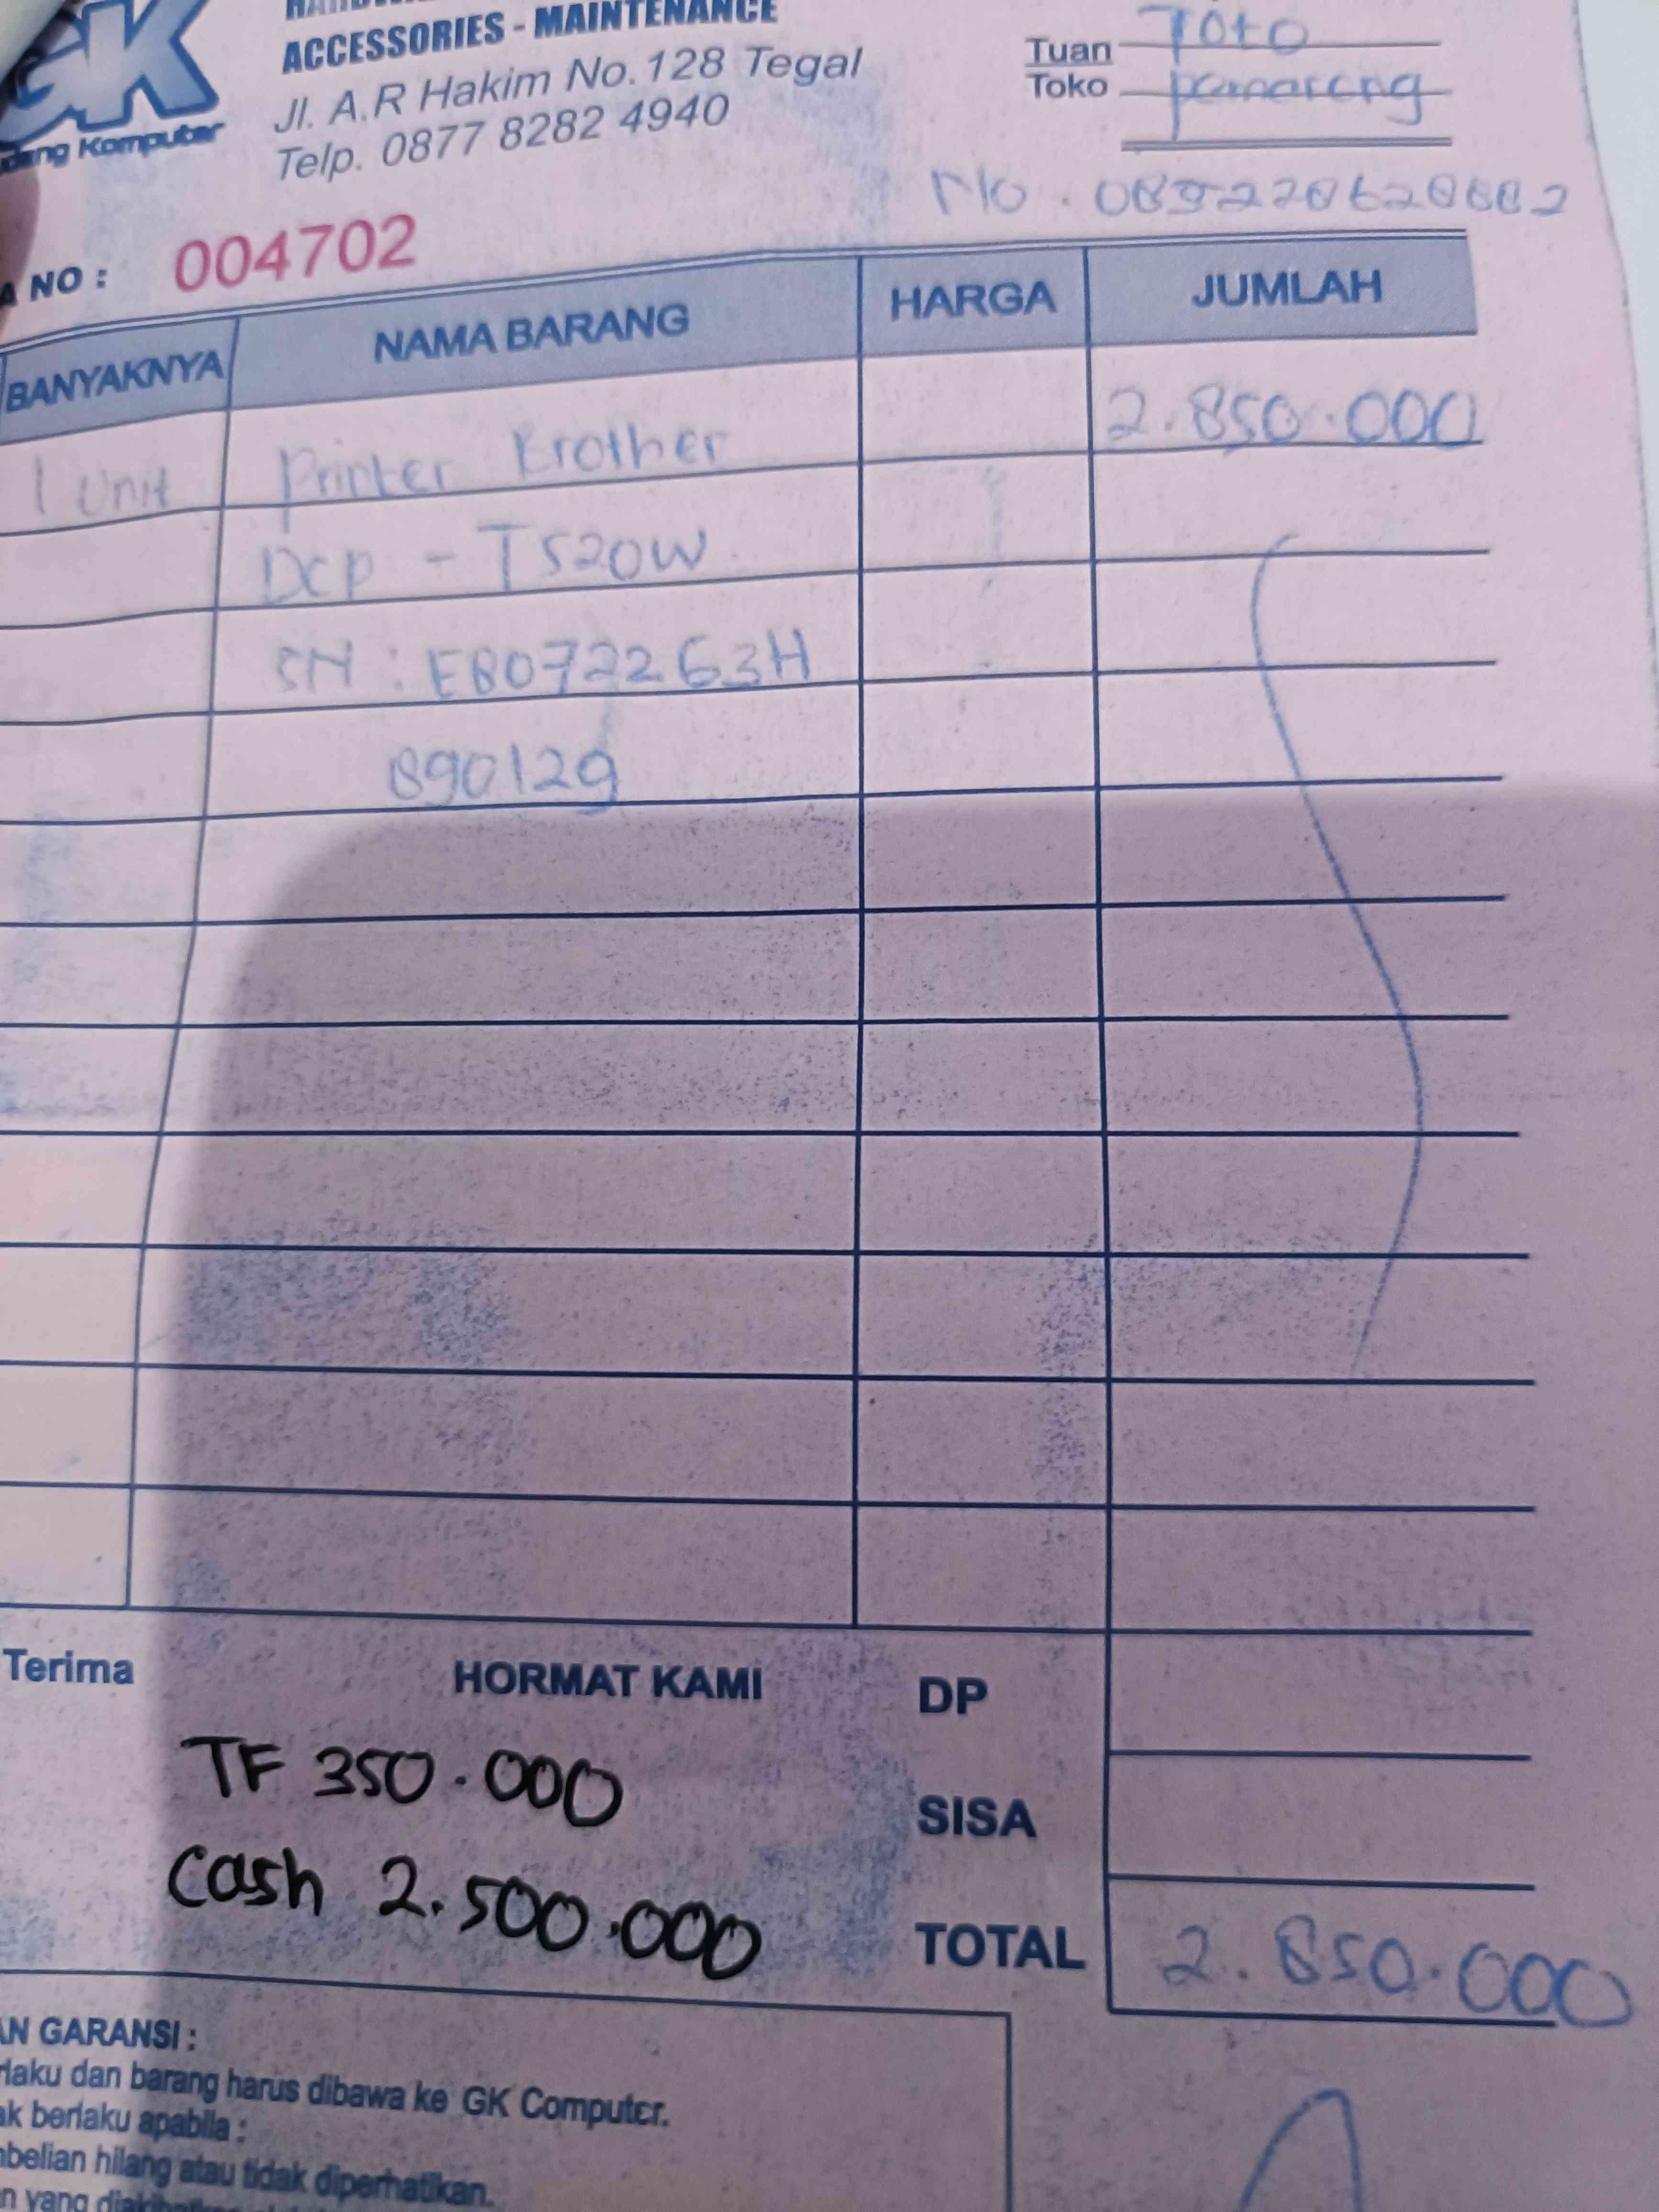 GK
ACCESSORIES - MAINTENANCE
Jl. A.R Hakim No.128 Tegal
Telp. 0877 8282 4940
Komputer
Tuan Toto
Toko pamareng
No. 089
NO : 004702
BANYAKNYA NAMA BARANG HARGA JUMLAH
1 Unit Printer Brother 2.850.000
DCP - T520W
SN : E80722G3H
890129
Terima HORMAT KAMI DP
TF 350.000
SISA
Cash 2.500.000
TOTAL 2.850.000
GARANSI :
dan barang harus dibawa ke GK Computer.
berlaku apabila :
hilang atau tidak diperhatikan.
yang